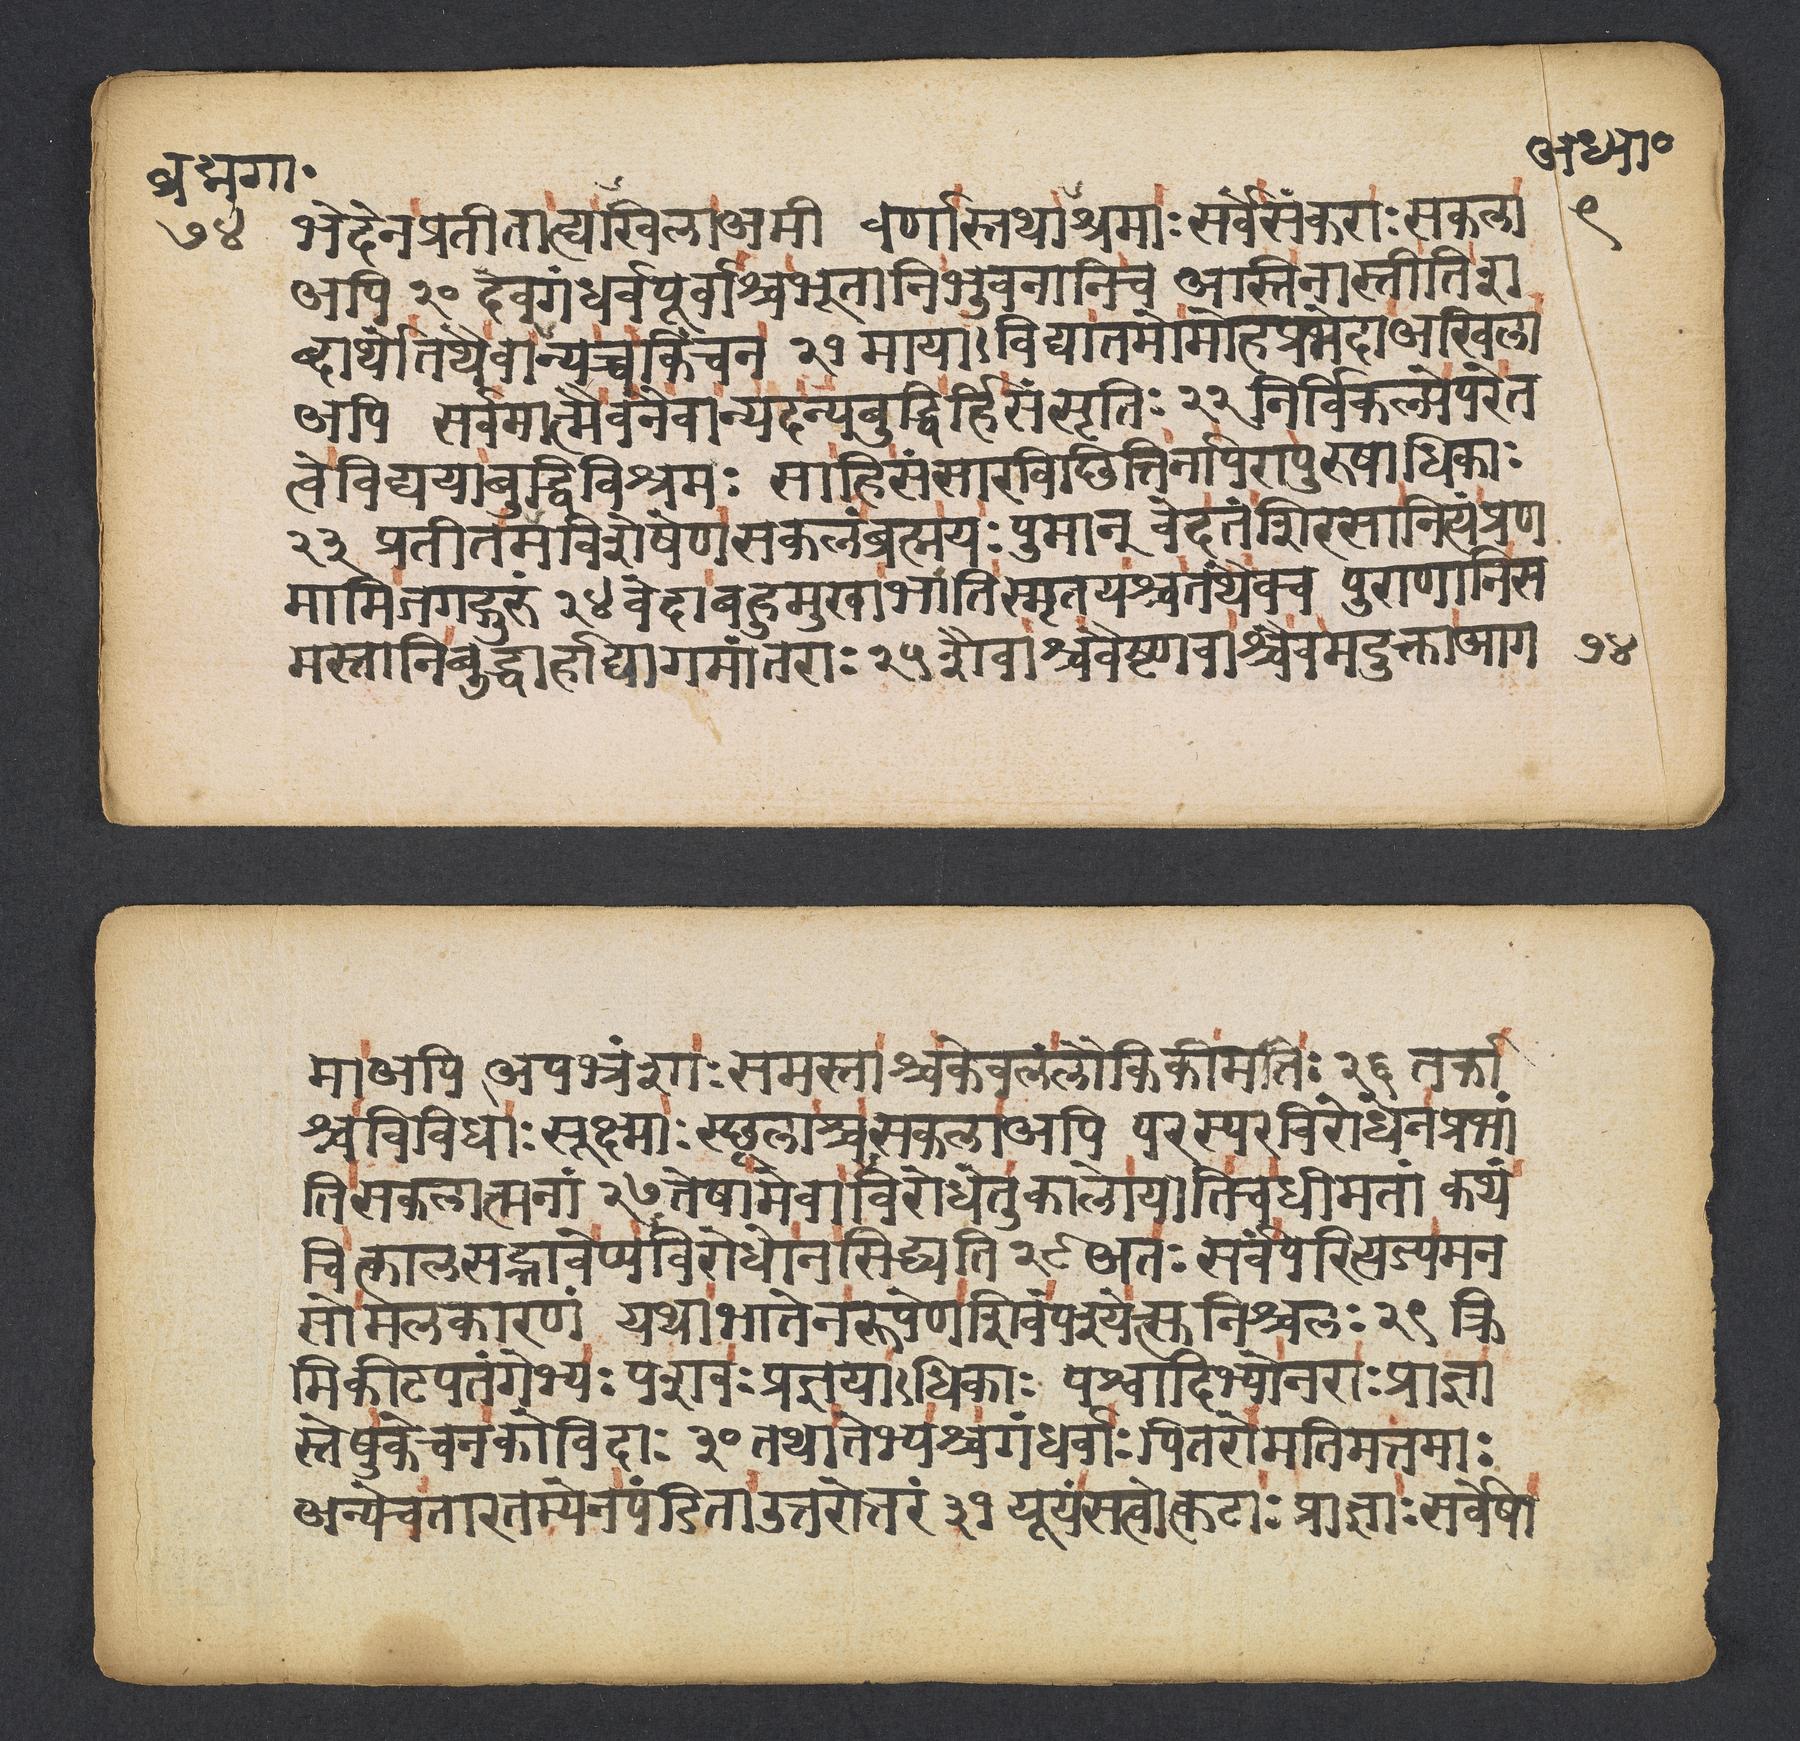 ब्रह्मगी॰
अध्या॰
७४
९
भेदेनप्रतीताह्यखिलाअमी वर्णास्तथाश्रमाःसर्वेसंकराःसकला
अपि २० देवगंधर्वपूर्वाश्चभूतानिभुवनानिच अस्तिनास्तीतिश
ब्दार्थेतिथैवान्यच्चकिंचन २१ मायाऽविद्यातमोमोहप्रभेदाअखिला
अपि सर्वमात्मैवनैवान्यदन्यबुद्धिर्हिसंसृतिः २२ निर्विकल्पेपरेत
त्वेविद्ययाबुद्धिविश्रमः साहिसंसारविछित्तिर्नापरापुरुषाधिकाः
२३ प्रतीतमविशेषेणसकलंब्रह्मयःपुमान् वेदतंशिरसानित्यंप्रण
मामिजगद्गुरुं २४ वेदाबहुमुखाभांतिस्मृतयश्चतथैवच पुराणानिस
मस्तानिबुद्धार्हाद्यागमांतराः २५ शैवाश्चवैष्णवाश्चैवमदुक्ताआग
७४
माअपि अपभ्रंशाःसमस्ताश्चकेवलंलौकिकीमतिः २६ तर्का
श्चविविधाःसूक्ष्माःस्छूलाश्चसकलाअपि परस्परविरोधेनप्रभां
तिसकलात्मनां २७ तेषामेवाविरोधेतुकालोयातिचधीमतां कथं
चित्कालसद्भावेप्यविरोधोनसिद्ध्यति २८ अतःसर्वंपरित्यज्यमन
सोमलकारणं यथाभातेनरूपेणशिवंपश्येत्सनिश्चलः २९ क्रि
मिकीटपतंगेभ्यःपशवःप्रज्ञयाऽधिकाः पश्वादिभ्योनराःप्राज्ञा
स्तेषुकेचनकोविदाः ३० तथातेभ्यश्चगंधर्वाःपितरोमतिमत्तमाः
अन्येचतारतम्येनपंडिताउत्तरोत्तरं ३१ यूयंसत्वोत्कटाःप्राज्ञाःसर्वेषां